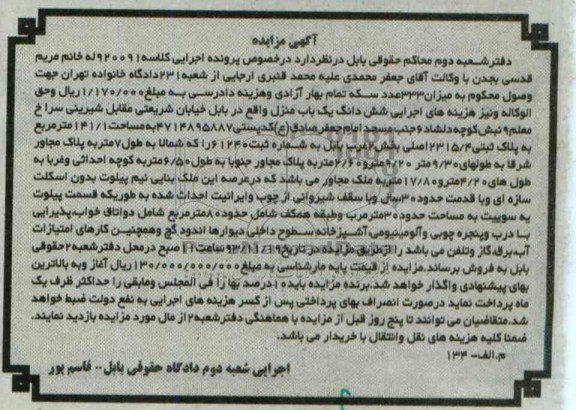 آگهی مزایده
دفترشعبه دوم محاکم حقوقی بابل درنظردارد درخصوص پرونده اجرایی کلاسه۹۲۰۰۹۱له خانم مریم
قدسی بجدن با وکالت آقای جعفر محمدی علیه محمد قنبری ارجایی از شعبه۲۳۱دادگاه خانواده تهران جهت
وصول محکوم به میزان۳۳۳عدد سکه تمام بهار آزادی وهزینه دادرسی به مبلغ۱/۱۷۰/۰۰۰ریال وحق
الوکاله ونیز هزینه های اجرایی شش دانگ یک باب منزل واقع در بابل خیابان شریعتی مقابل شیرینی سرا خ
معلم۹نبش کوچه دلشاد۶جنب مسجد امام جعفرصادق(ع)کدپستی۴۷۱۴۸۹۵۸۸۷به مساحت۱۴۱/۱مترمربع
به پلاک ثبتی۲۳۱۵/۴اصلی بخش۲غرب بابل به شماره ثبت۶۱۲۴۰را که شمالا به طول۷متربه پلاک مجاور
شرقا به طولهای۹/۳۰متر ۹/۲۰مترو۲/۶۰متربه پلاک مجاور جنوبا به طول۶/۵۰متربه کوچه احداثی وغربا به
طول های۴/۲۰مترو۱۷/۸۰متربه ملک مجاور می باشد که درعرصه این ملک بنایی نیم پیلوت بدون اسکلت
سازه ای وبا قدمت حدود۳۰سال وبا سقف شیروانی از چوب وایرانیت احداث شده به طوریکه قسمت پیلوت
یه سوییت به مساحت حدود۳۰مترمرب وطبقه همکف شامل حدود۸۰مترمربع شامل دواتاق خواب،پذیرایی
با درب وپنجره چوبی وآلومینیومی آشپزخانه سطوح داخلی دیوارها اندود گچ وهمچنین کارهای امتیازات
آب،برق،گاز وتلفن می باشد را ازطریق مزایده در تاریخ۹۳/۸/۱۹ساعت۱۱ صبح درمحل دفترشعبه۲حقوقی
بابل به فروش برساند.مزایده از قیمت پایه کارشناسی به مبلغ۱۳۰/۰۰۰/۰۰۰/۰۰۰ریال آغاز وبه بالاترین
بهای پیشنهادی واگذار خواهد شد.برنده مزایده باید۱۰درصد بها را فی المجلس ومابقی را حداکثر ظرف یک
ماه پرداخت نماید درصورت انصراف بهای پرداختی پس از کسر هزینه های اجرایی به نفع دولت ضبط خواهد
شد.متقاضیان می توانند تا پنج روز قبل از مزایده با هماهنگی دفترشعبه۲از مال مورد مزایده بازدید نمایند.
ضمنا کلیه هزینه های نقل وانتقال با خریدار می باشد.
م.الف- ۱۳۴
اجرایی شعبه دوم دادگاه حقوقی بابل-- قاسم پور